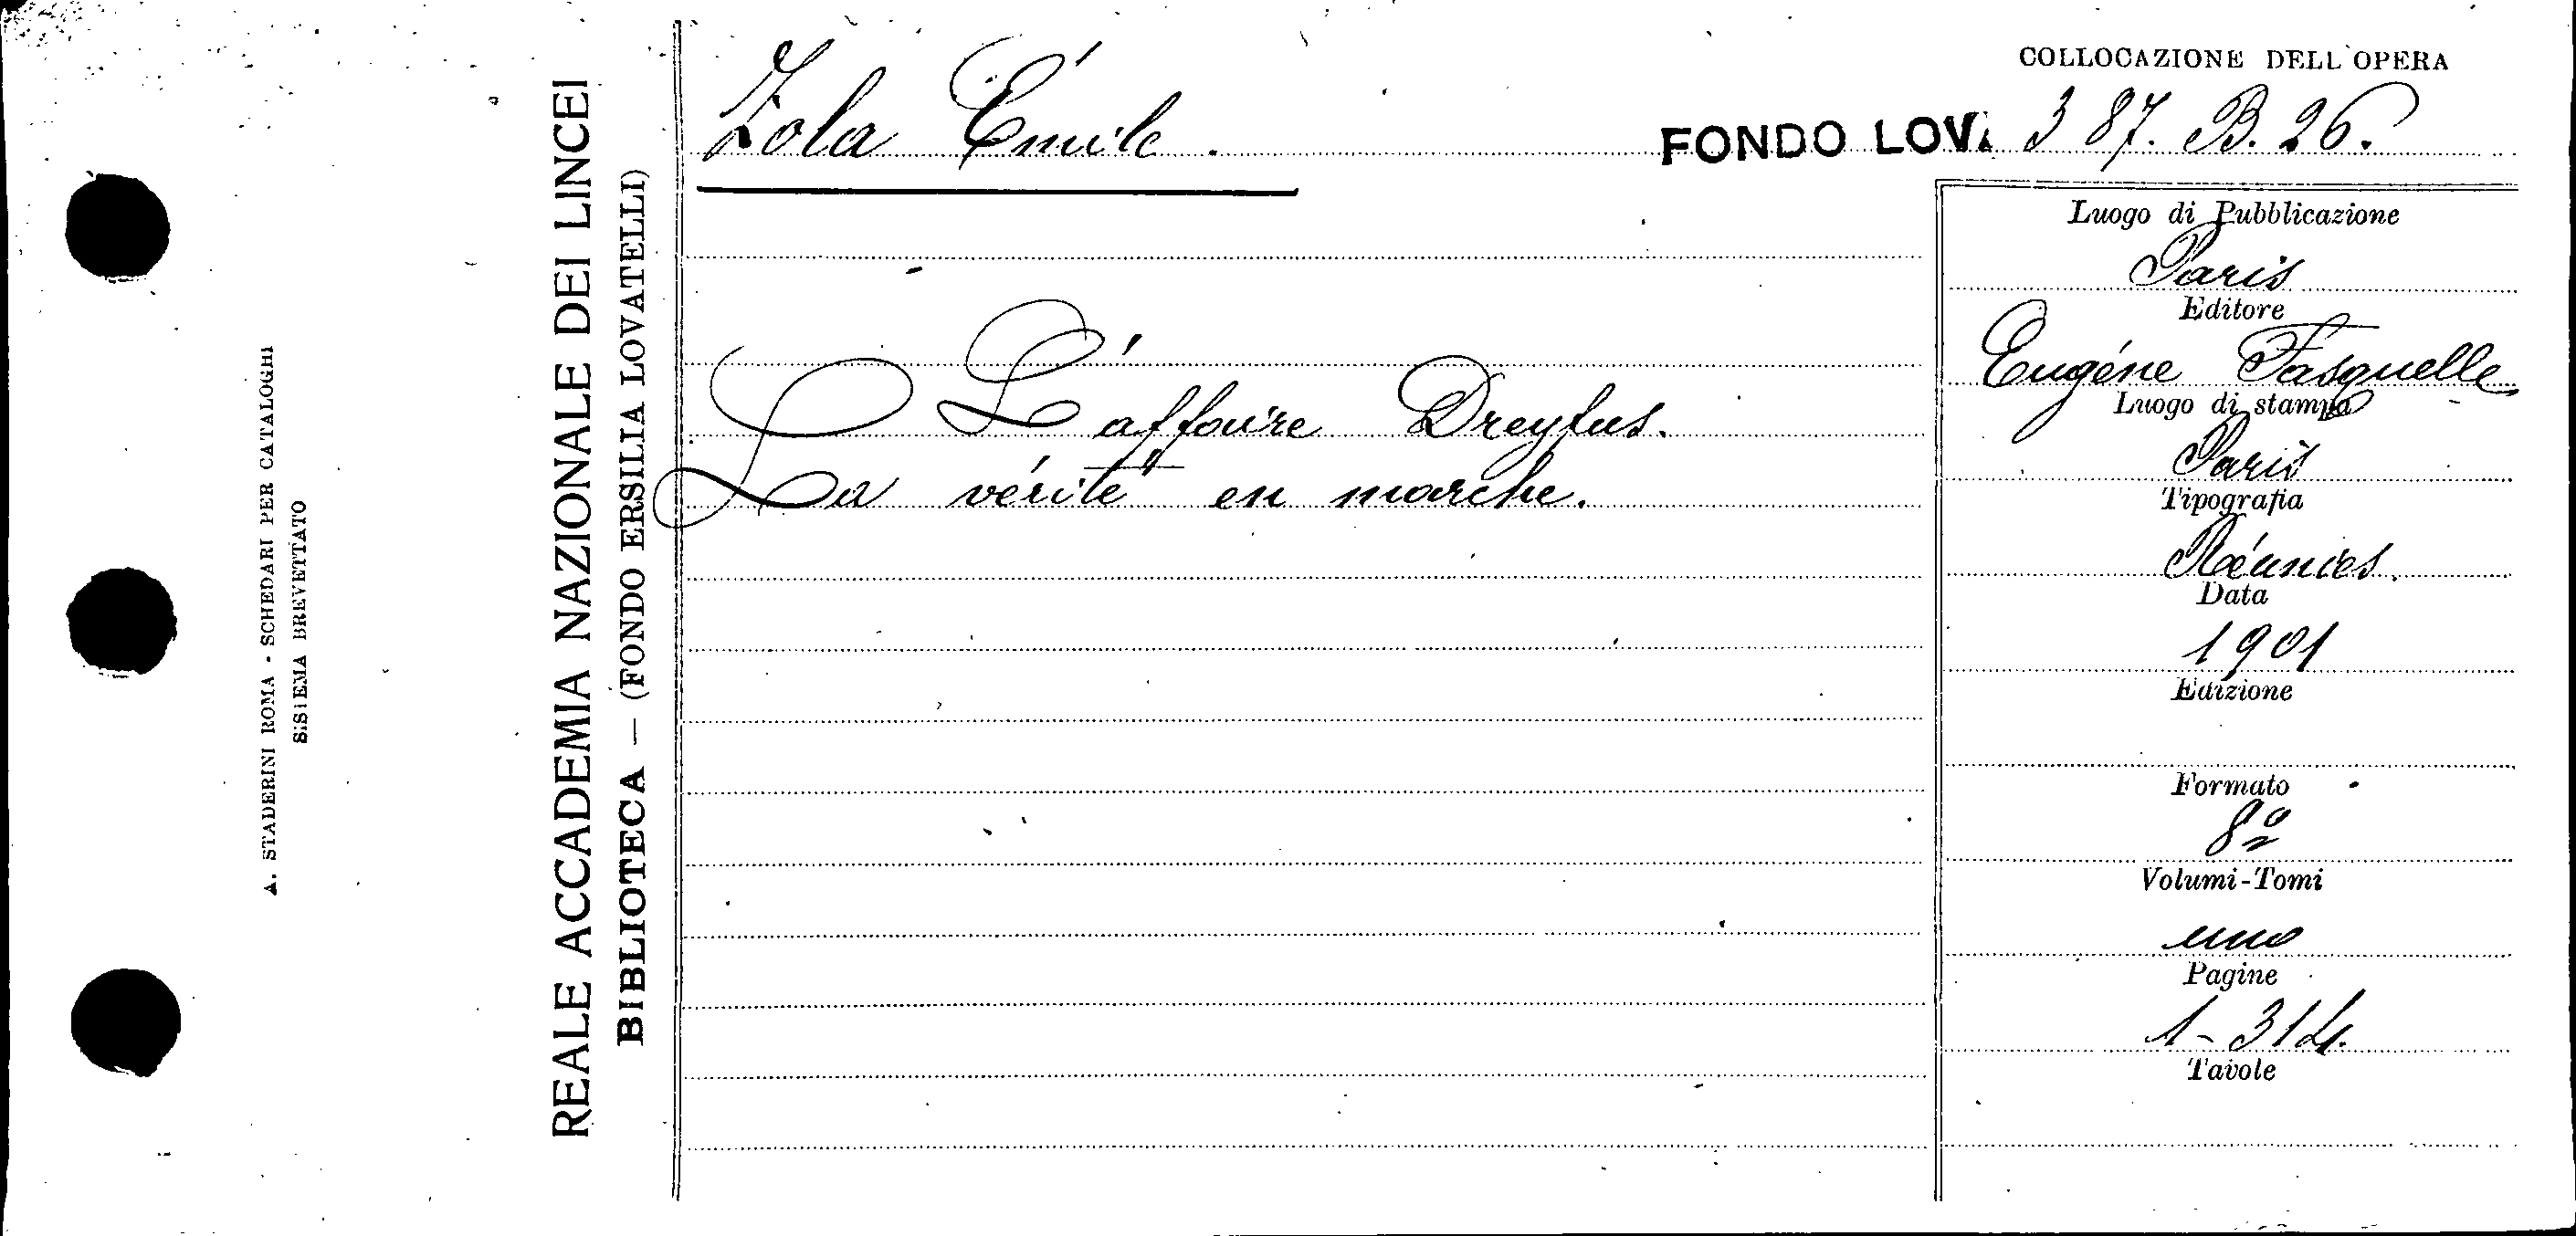 A. STADERINI ROMA - SCHEDARI PER CATALOGHI
SISTEMA BREVETTATO
REALE ACCADEMIA NAZIONALE DEI LINCEI
BIBLIOTECA — (FONDO ERSILIA LOVATELLI)
Zola Émile.
COLLOCAZIONE DELL'OPERA
FONDO LOV. 387. B. 26.
L'affaire Dreyfus.
La vérité en marche.
Luogo di Pubblicazione
Paris
Editore
Eugéne Fasquelle
Luogo di stampa
Paris
Tipografia
Réunies.
Data
1901
Edizione
Formato
8º
Volumi-Tomi
uno
Pagine
1-314.
Tavole